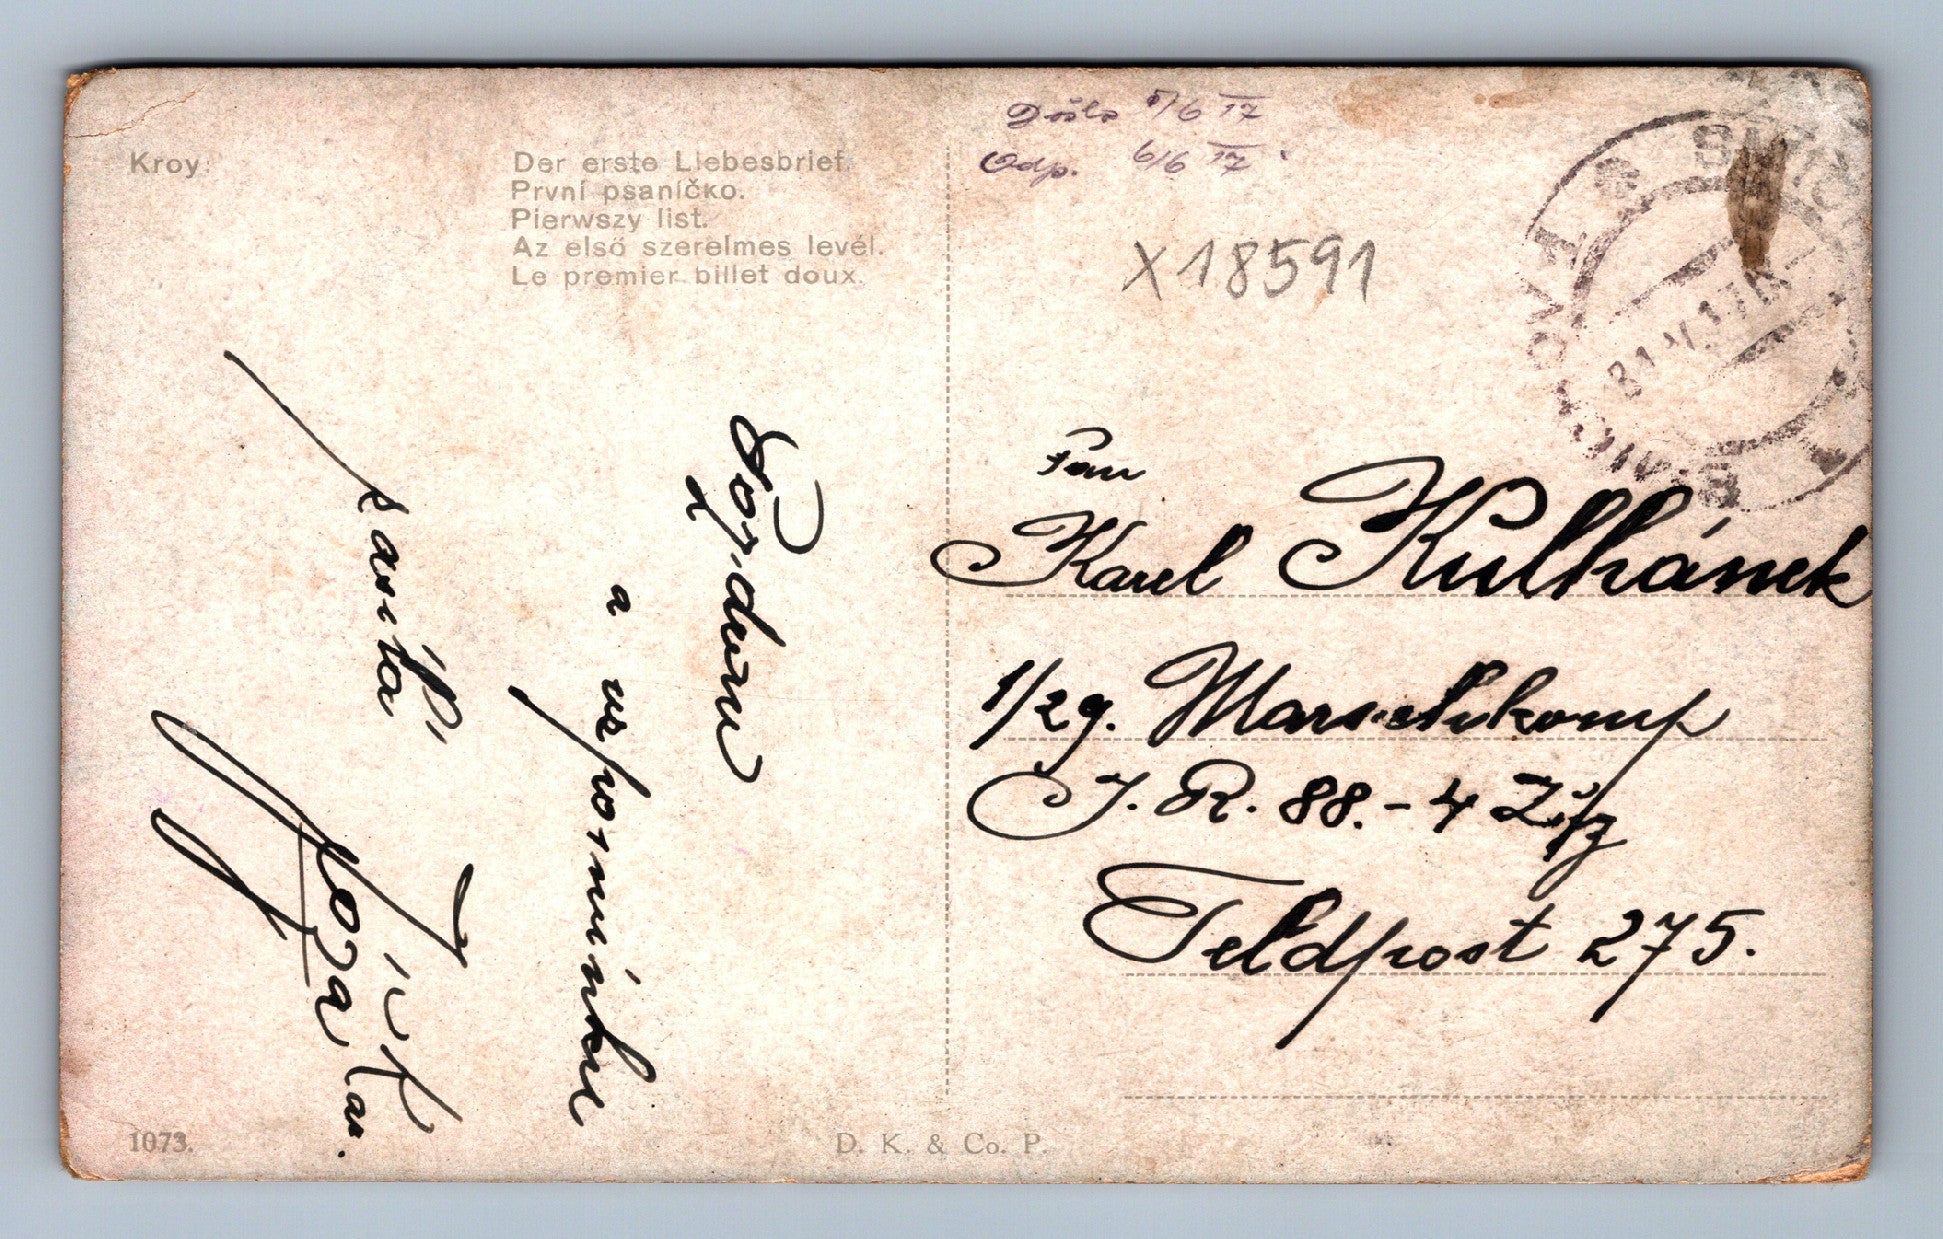 Kroy.
Der erste Liebesbrief.
První psaníčko.
Pierwszy list.
Az első szerelmes levél.
Le premier billet doux.
Došlo 5/6 17
Odp. 6/6 17.
X 18591
31.V.17
Pan
Karel Kulhánek
1/29. Marschkomp
I. R. 88. - 4 Zug
Feldpost 275.
Pozdrav
a vzpomínku
zasílá
1073.
D. K. & Co. P.